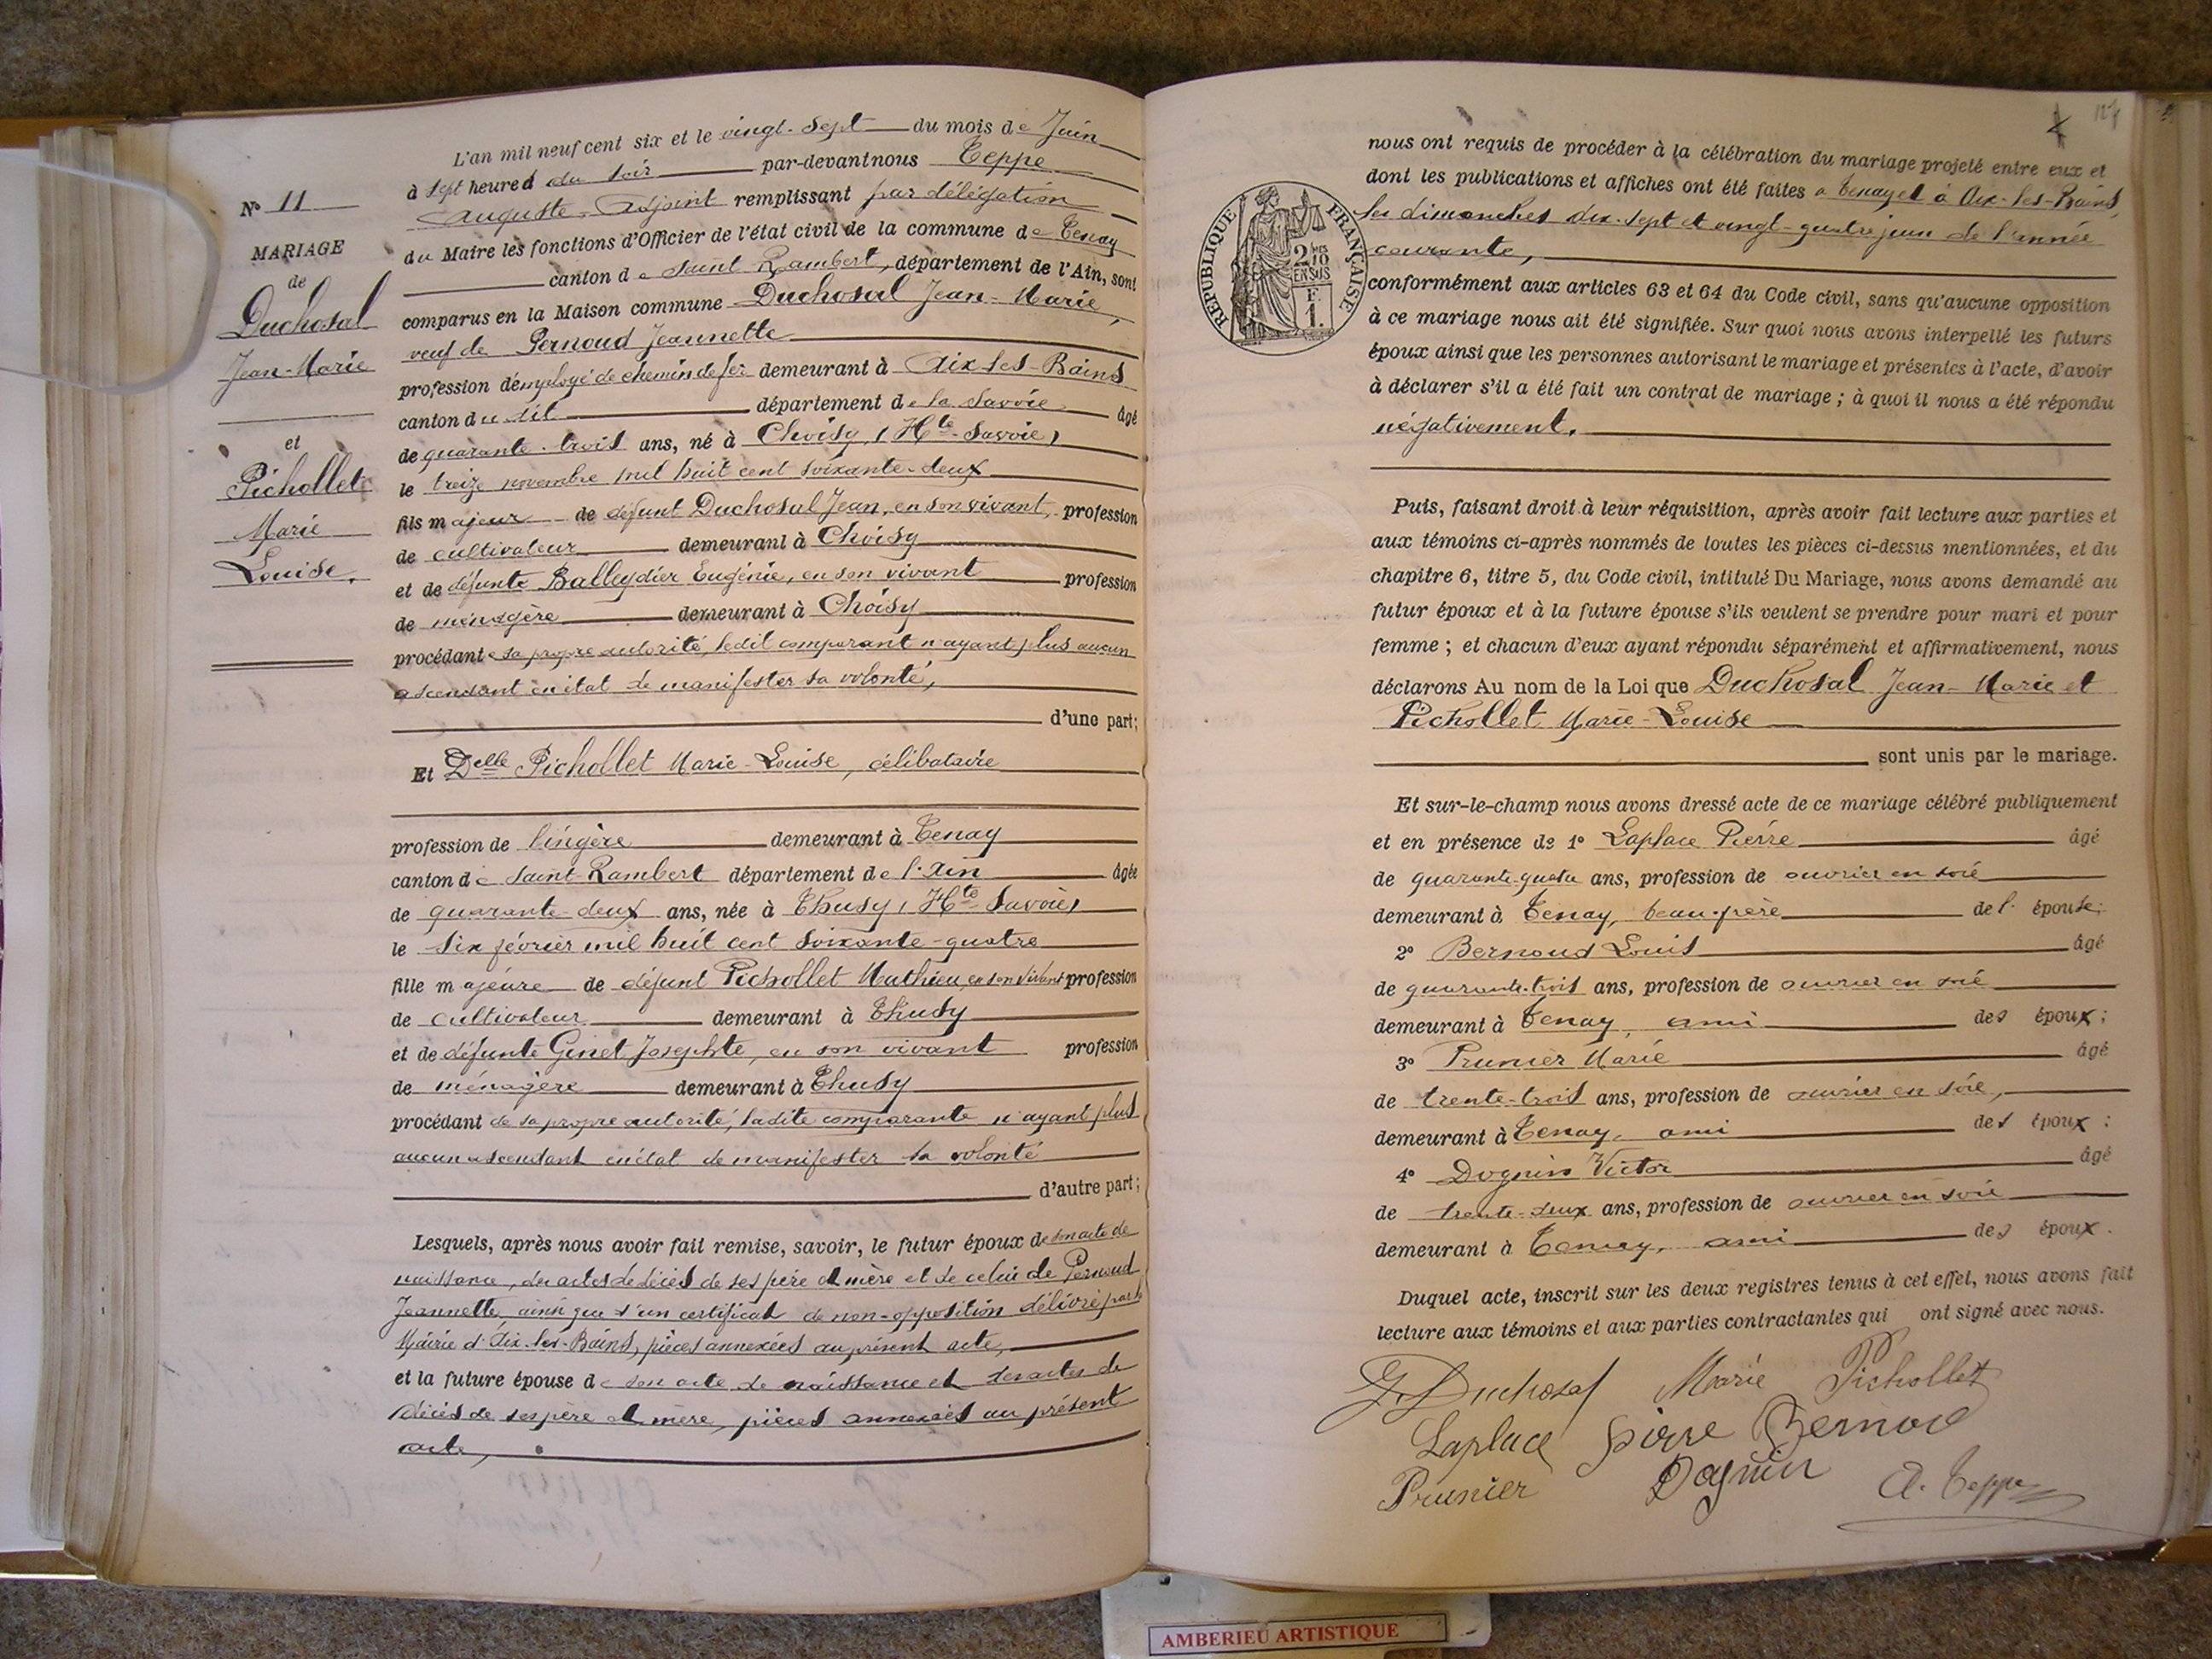 L'an mil neuf cent six et le vingt-sept du mois de Juin
à sept heures du soir par-devant nous Teppe
Auguste-Adjoint remplissant par délégation
du Maire les fonctions d'Officier de l'état civil de la commune de Tenay
canton de Saint Rambert, département de l'Ain, sont
comparus en la Maison commune Duchosal Jean-Marie,
veuf de Pernoud Jeannette
profession d'employé de chemin de fer demeurant à Aix-les-Bains
canton du dit département de la Savoie âgé
de quarante-trois ans, né à Choisy, (Hte-Savoie)
le treize novembre mil huit cent soixante-deux
fils majeur de défunt Duchosal Jean, en son vivant, profession
de cultivateur demeurant à Choisy
et de défunte Balleydier Eugénie, en son vivant profession
de ménagère demeurant à Choisy
procédant de sa propre autorité, ledit comparant n'ayant plus aucun
ascendant en état de manifester sa volonté,
d'une part;
Et Delle Pichollet Marie-Louise, célibataire
profession de lingère demeurant à Tenay
canton de Saint-Rambert département de l'Ain âgée
de quarante-deux ans, née à Thusy, (Hte Savoie)
le six février mil huit cent soixante-quatre
fille majeure de défunt Pichollet Mathieu, en son vivant profession
de cultivateur demeurant à Thusy
et de défunte Ginet Josephte, en son vivant profession
de ménagère demeurant à Thusy
procédant de sa propre autorité, ladite comparante n'ayant plus
aucun ascendant en état de manifester sa volonté
d'autre part;
Lesquels, après nous avoir fait remise, savoir, le futur époux de son acte de
naissance, des actes de décès de ses père et mère et de celui de Pernoud
Jeannette, ainsi que d'un certificat de non-opposition délivré par la
Mairie d'Aix-les-Bains, pièces annexées au présent acte,
et la future épouse de son acte de naissance et des actes de
décès de ses père et mère, pièces annexées au présent
acte,
No 11
MARIAGE
de
Duchosal
Jean-Marie
et
Pichollet
Marie
Louise.
127
nous ont requis de procéder à la célébration du mariage projeté entre eux et
dont les publications et affiches ont été faites à Tenay et à Aix-les-Bains,
les dimanches dix-sept et vingt-quatre juin de l'année
courante,
conformément aux articles 63 et 64 du Code civil, sans qu'aucune opposition
à ce mariage nous ait été signifiée. Sur quoi nous avons interpellé les futurs
époux ainsi que les personnes autorisant le mariage et présentes à l'acte, d'avoir
à déclarer s'il a été fait un contrat de mariage; à quoi il nous a été répondu
négativement.
Puis, faisant droit à leur réquisition, après avoir fait lecture aux parties et
aux témoins ci-après nommés de toutes les pièces ci-dessus mentionnées, et du
chapitre 6, titre 5, du Code civil, intitulé Du Mariage, nous avons demandé au
futur époux et à la future épouse s'ils veulent se prendre pour mari et pour
femme; et chacun d'eux ayant répondu séparément et affirmativement, nous
déclarons Au nom de la Loi que Duchosal Jean-Marie et
Pichollet Marie-Louise
sont unis par le mariage.
Et sur-le-champ nous avons dressé acte de ce mariage célébré publiquement
et en présence de 1° Laplace Pierre âgé
de quarante-quatre ans, profession de ouvrier en soie
demeurant à Tenay, beau-frère de l'épouse;
2° Bernoud Louis âgé
de quarante-trois ans, profession de ouvrier en soie
demeurant à Tenay, ami des époux;
3° Prunier Marie âgé
de trente-trois ans, profession de ouvrier en soie,
demeurant à Tenay, ami des époux;
4° Dognin Victor âgé
de trente-deux ans, profession de ouvrier en soie
demeurant à Tenay, ami des époux.
Duquel acte, inscrit sur les deux registres tenus à cet effet, nous avons fait
lecture aux témoins et aux parties contractantes qui ont signé avec nous.
Duchosal Marie Pichollet
Laplace pierre Bernoud
Prunier Dognin A. Teppe
RÉPUBLIQUE FRANÇAISE
2/10
EN SUS
F.
1.
AMBERIEU ARTISTIQUE